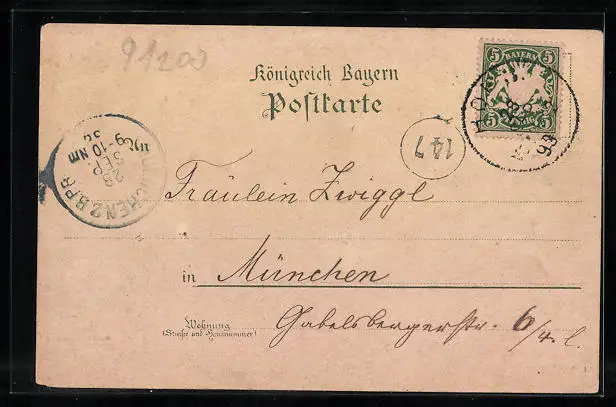 91200
Königreich Bayern
Postkarte
5 BAYERN 5
5 5
147
MÜNCHEN 2 B.P.R.
28 SEP.
9-10 Nm
An
Fräulein Zwiggl
in München
Wohnung
(Straße und Hausnummer)
Gabelsbergerstr. 6/4. l.